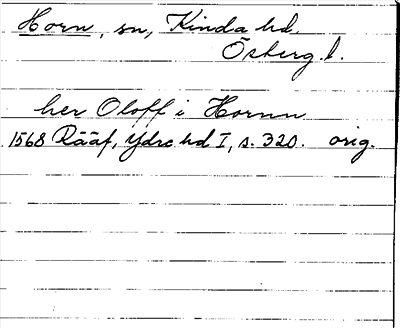 Horn, sn, Kinda hd.
Östergl.
her Oloff i Hornn
1568 Rääf, Ydre hd I, s. 320. orig.